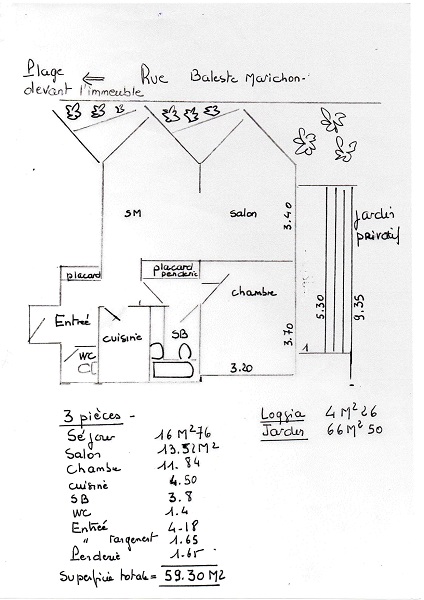 Plage
devant l'immeuble
Rue Baleste Marichon.
SM
salon
3.40
jardin
privatif
placard
placard
penderie
chambre
5.30
9.35
Entreé
cuisine
SB
WC
3.70
3.20
1
3 pièces -
Séjour 16 M² 76
Salon 13.52 M²
Chambe 11.84
cuisine 4.50
SB 3.8
WC 1.4
Entreé 4-18
" rangement 1.65
Penderie 1.65
Superficie totale = 59.30 M2
Loggia 4 M² 26
Jardin 66 M² 50